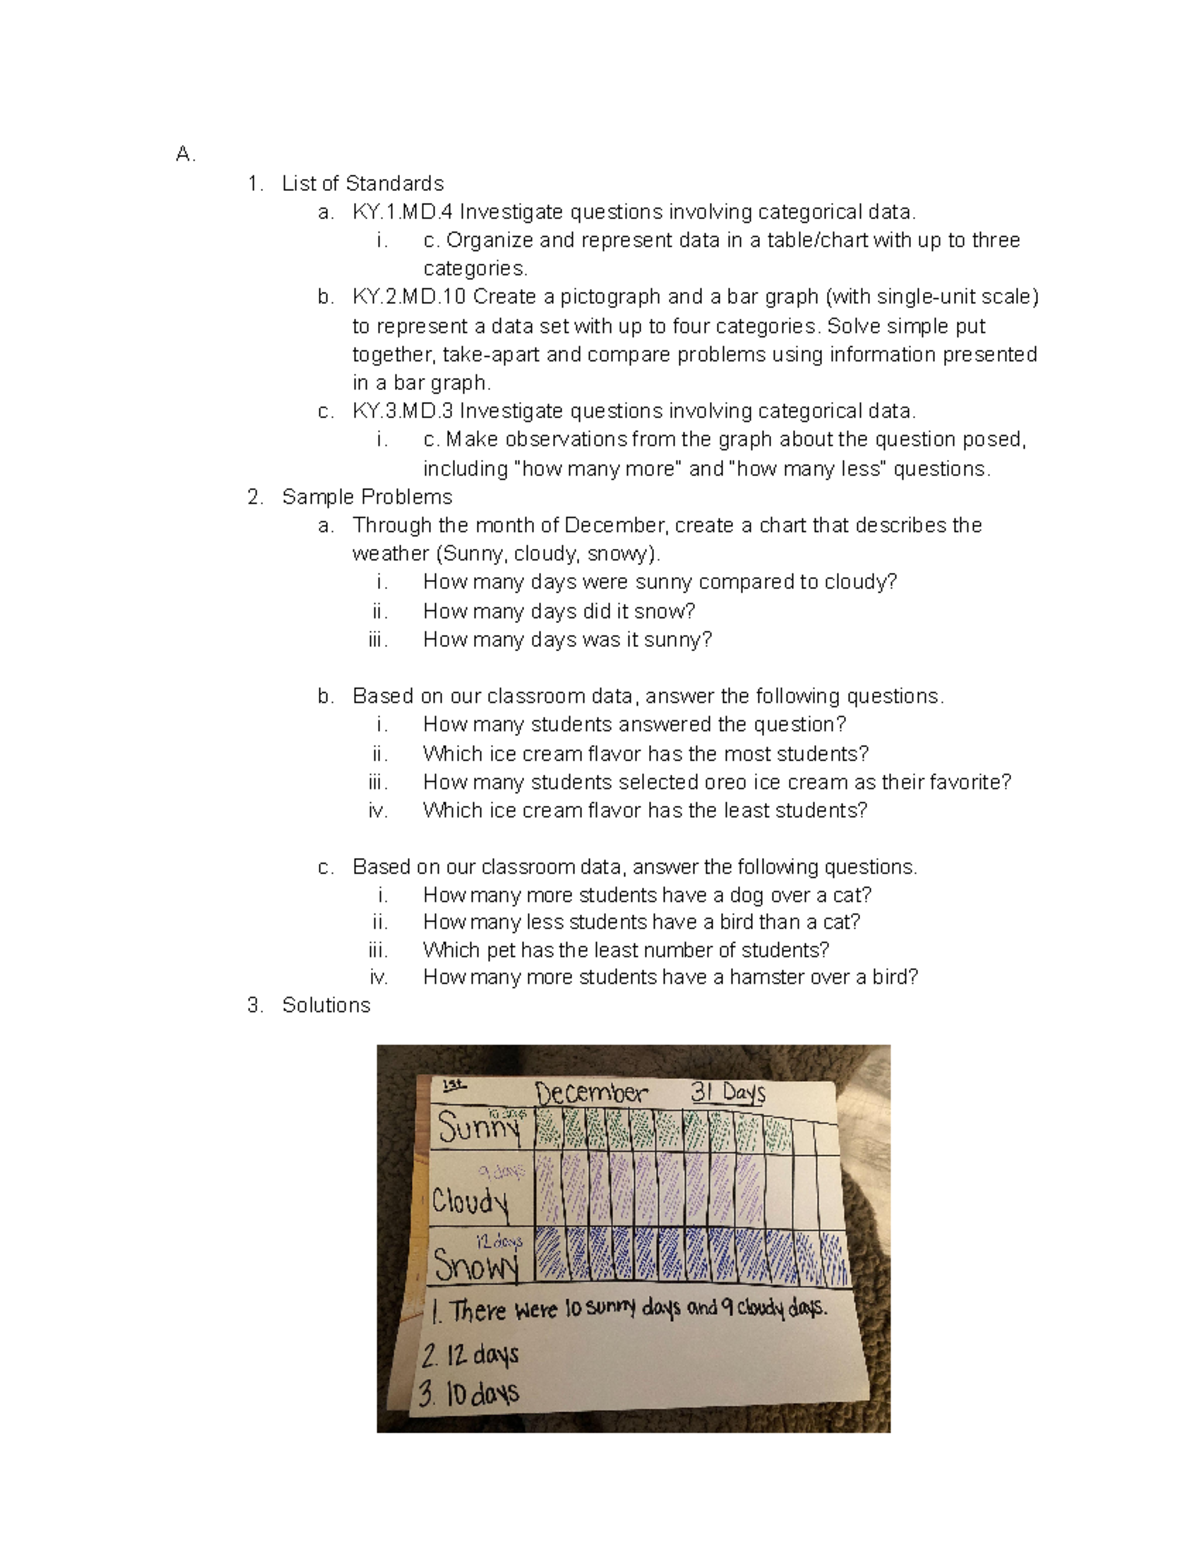 A.
1. List of Standards
a. KY.1.MD.4 Investigate questions involving categorical data.
i. c. Organize and represent data in a table/chart with up to three
categories.
b. KY.2.MD.10 Create a pictograph and a bar graph (with single-unit scale)
to represent a data set with up to four categories. Solve simple put
together, take-apart and compare problems using information presented
in a bar graph.
c. KY.3.MD.3 Investigate questions involving categorical data.
i. c. Make observations from the graph about the question posed,
including "how many more" and "how many less" questions.
2. Sample Problems
a. Through the month of December, create a chart that describes the
weather (Sunny, cloudy, snowy).
i. How many days were sunny compared to cloudy?
ii. How many days did it snow?
iii. How many days was it sunny?
b. Based on our classroom data, answer the following questions.
i. How many students answered the question?
ii. Which ice cream flavor has the most students?
iii. How many students selected oreo ice cream as their favorite?
iv. Which ice cream flavor has the least students?
c. Based on our classroom data, answer the following questions.
i. How many more students have a dog over a cat?
ii. How many less students have a bird than a cat?
iii. Which pet has the least number of students?
iv. How many more students have a hamster over a bird?
3. Solutions
1st December 31 Days
10 days
Sunny
9 days
Cloudy
12 days
Snowy
1. There were 10 sunny days and 9 cloudy days.
2. 12 days
3. 10 days